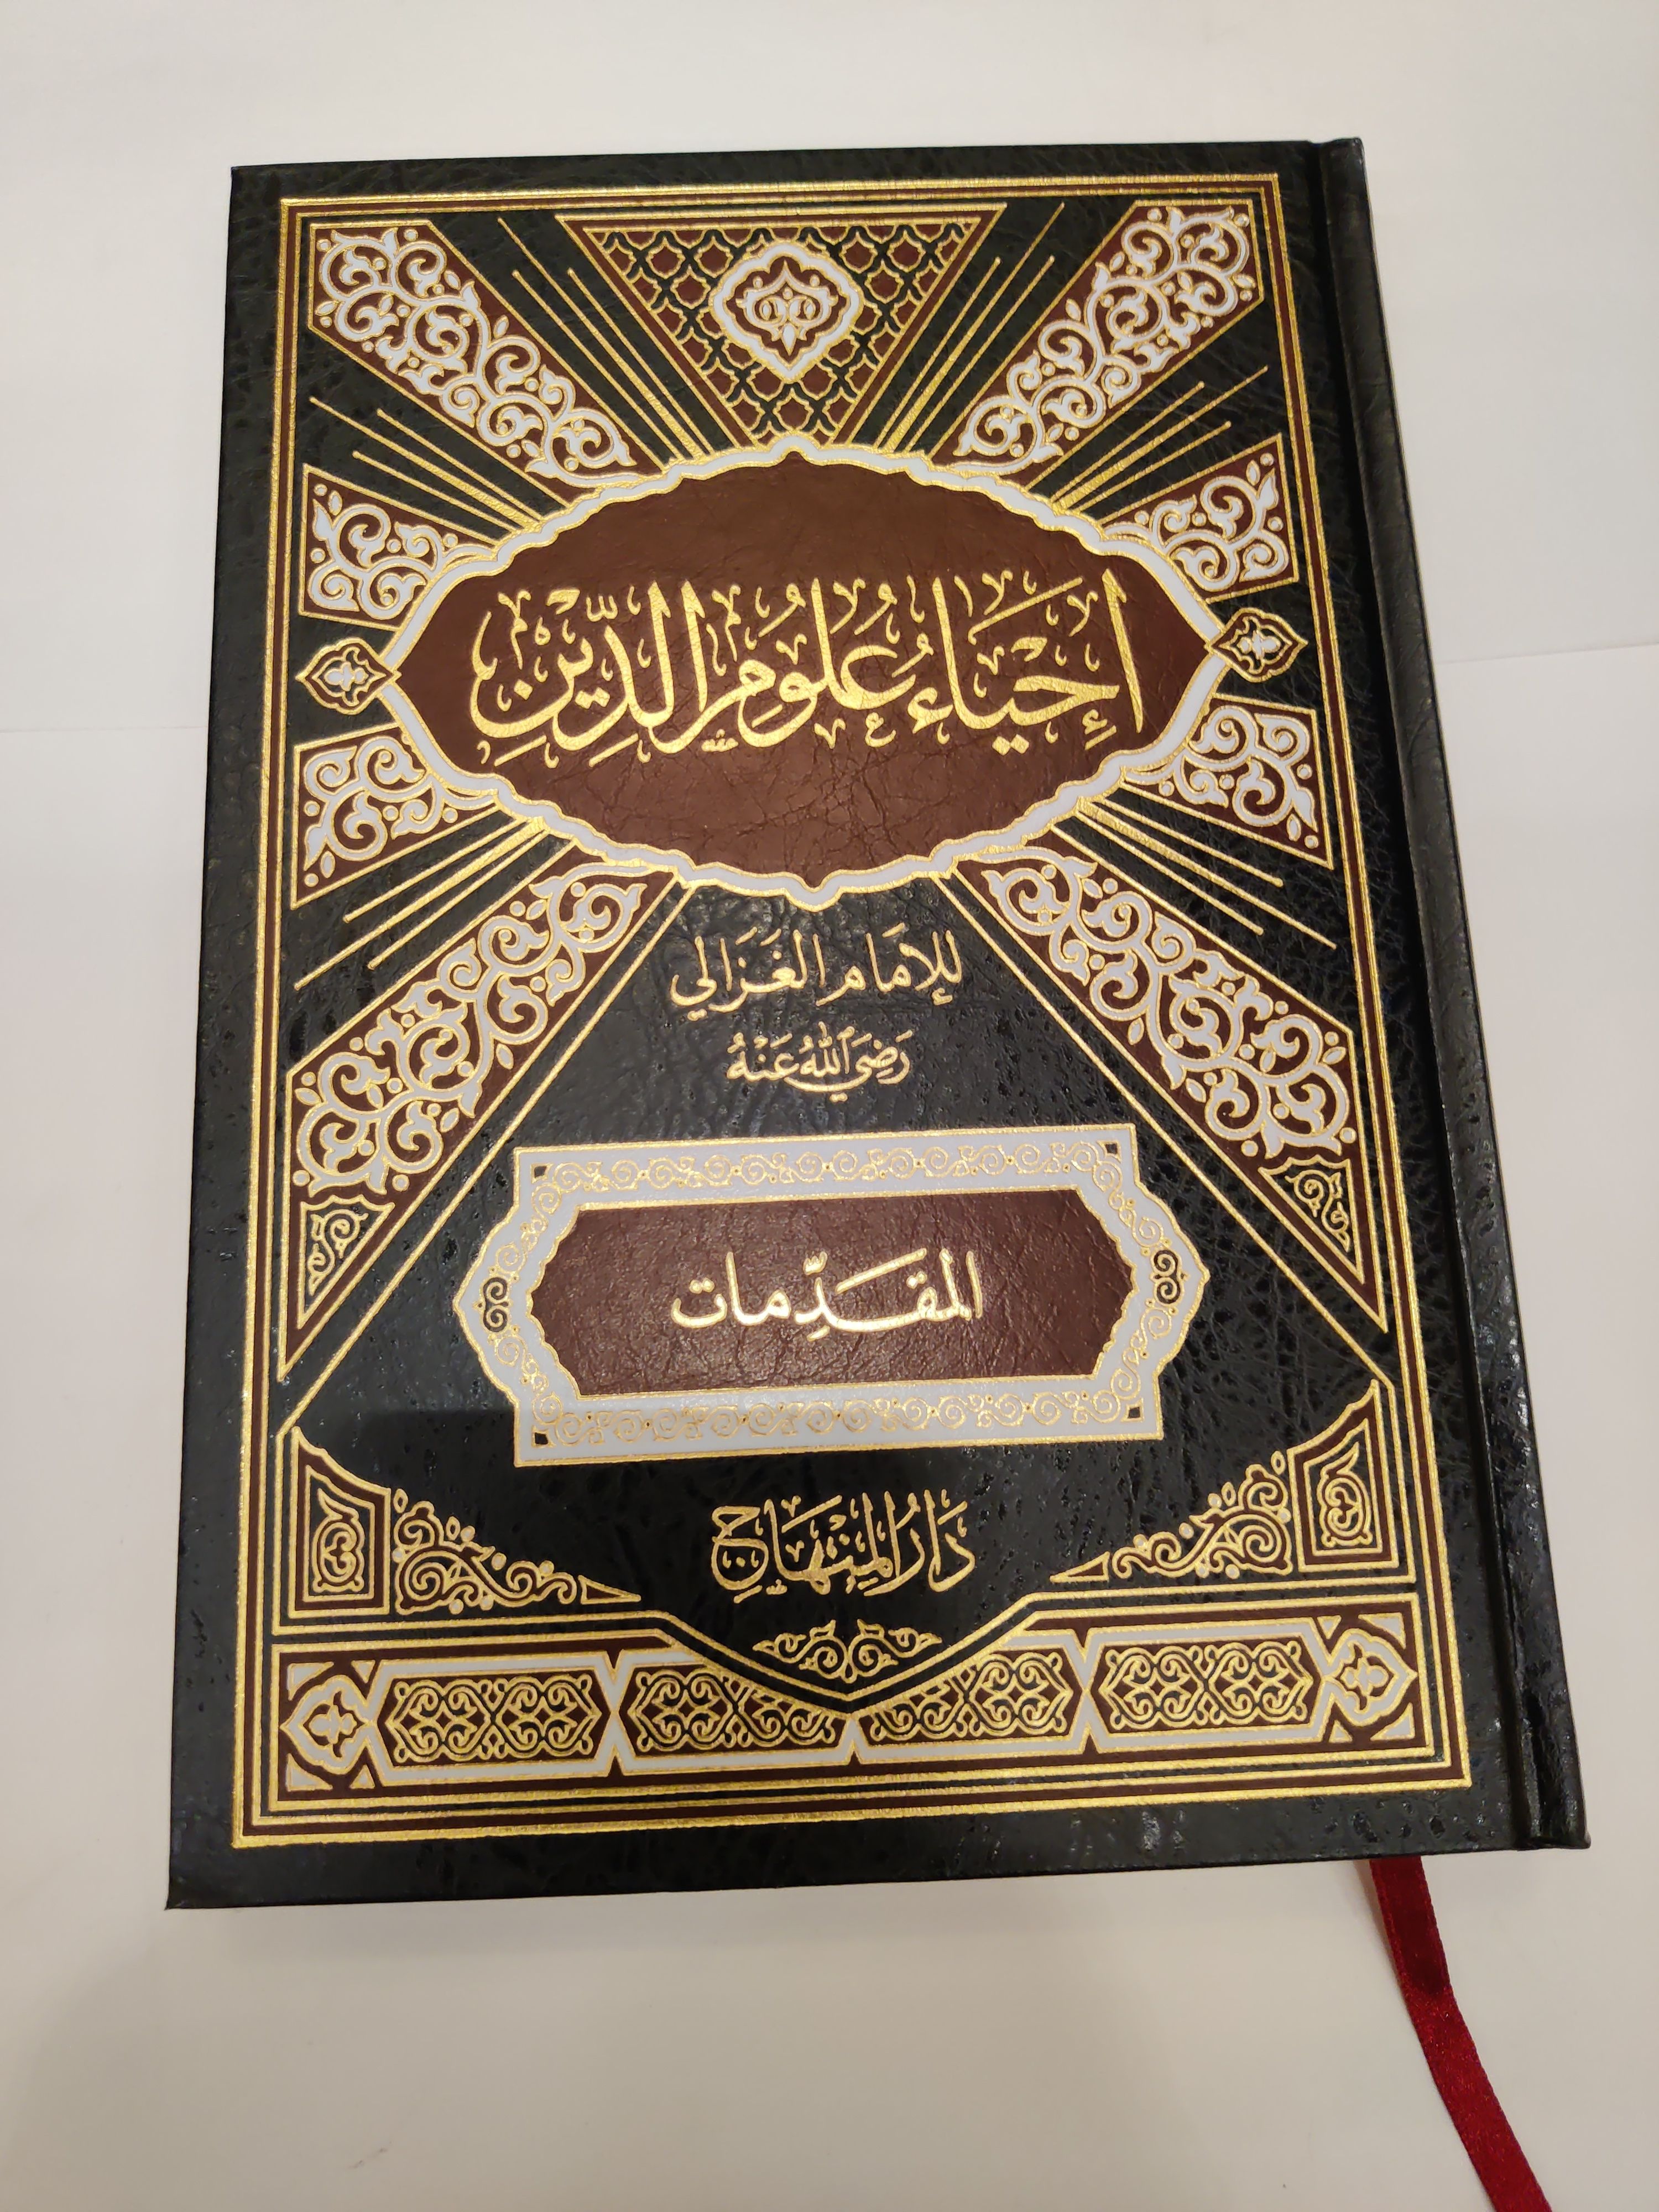 إِحْيَاءُ عُلُومِ الدِّيْنِ
لِلإِمَامِ الغَزَالِي
رَضِيَ ٱللهُ عَنْهُ
المقَدِّمات
دَارُ المِنْهَاجِ